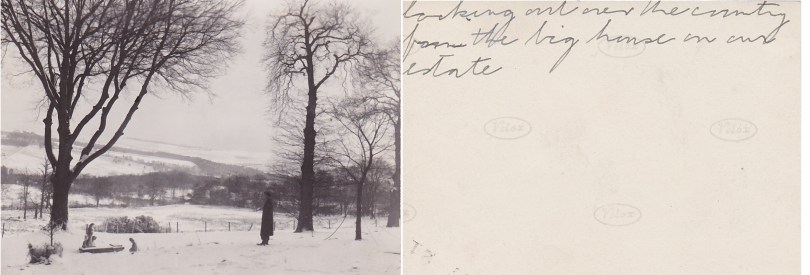 looking out over the country
from the big house on our
estate
Velox
Velox
Velox
Velox